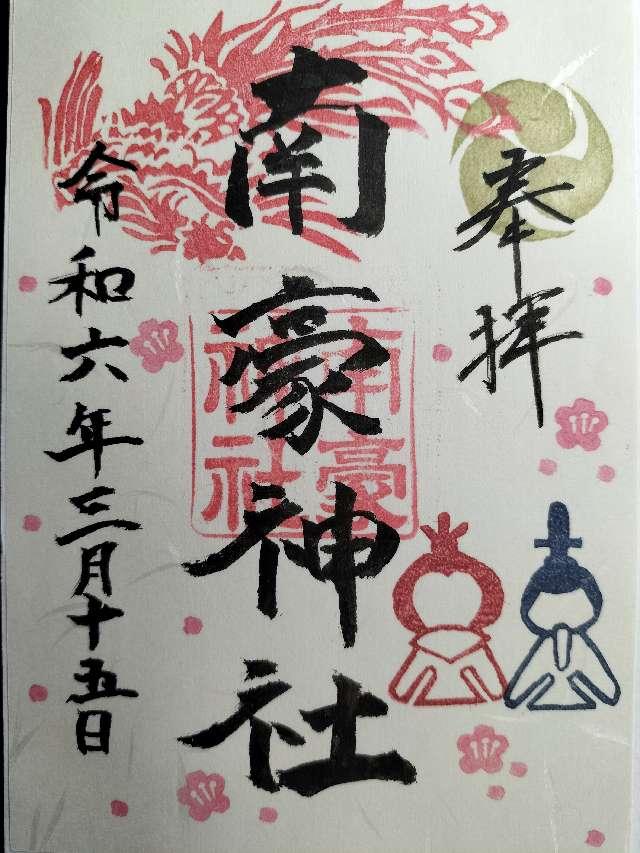 奉拝
南豪神社
南豪
神社
令和六年三月十五日